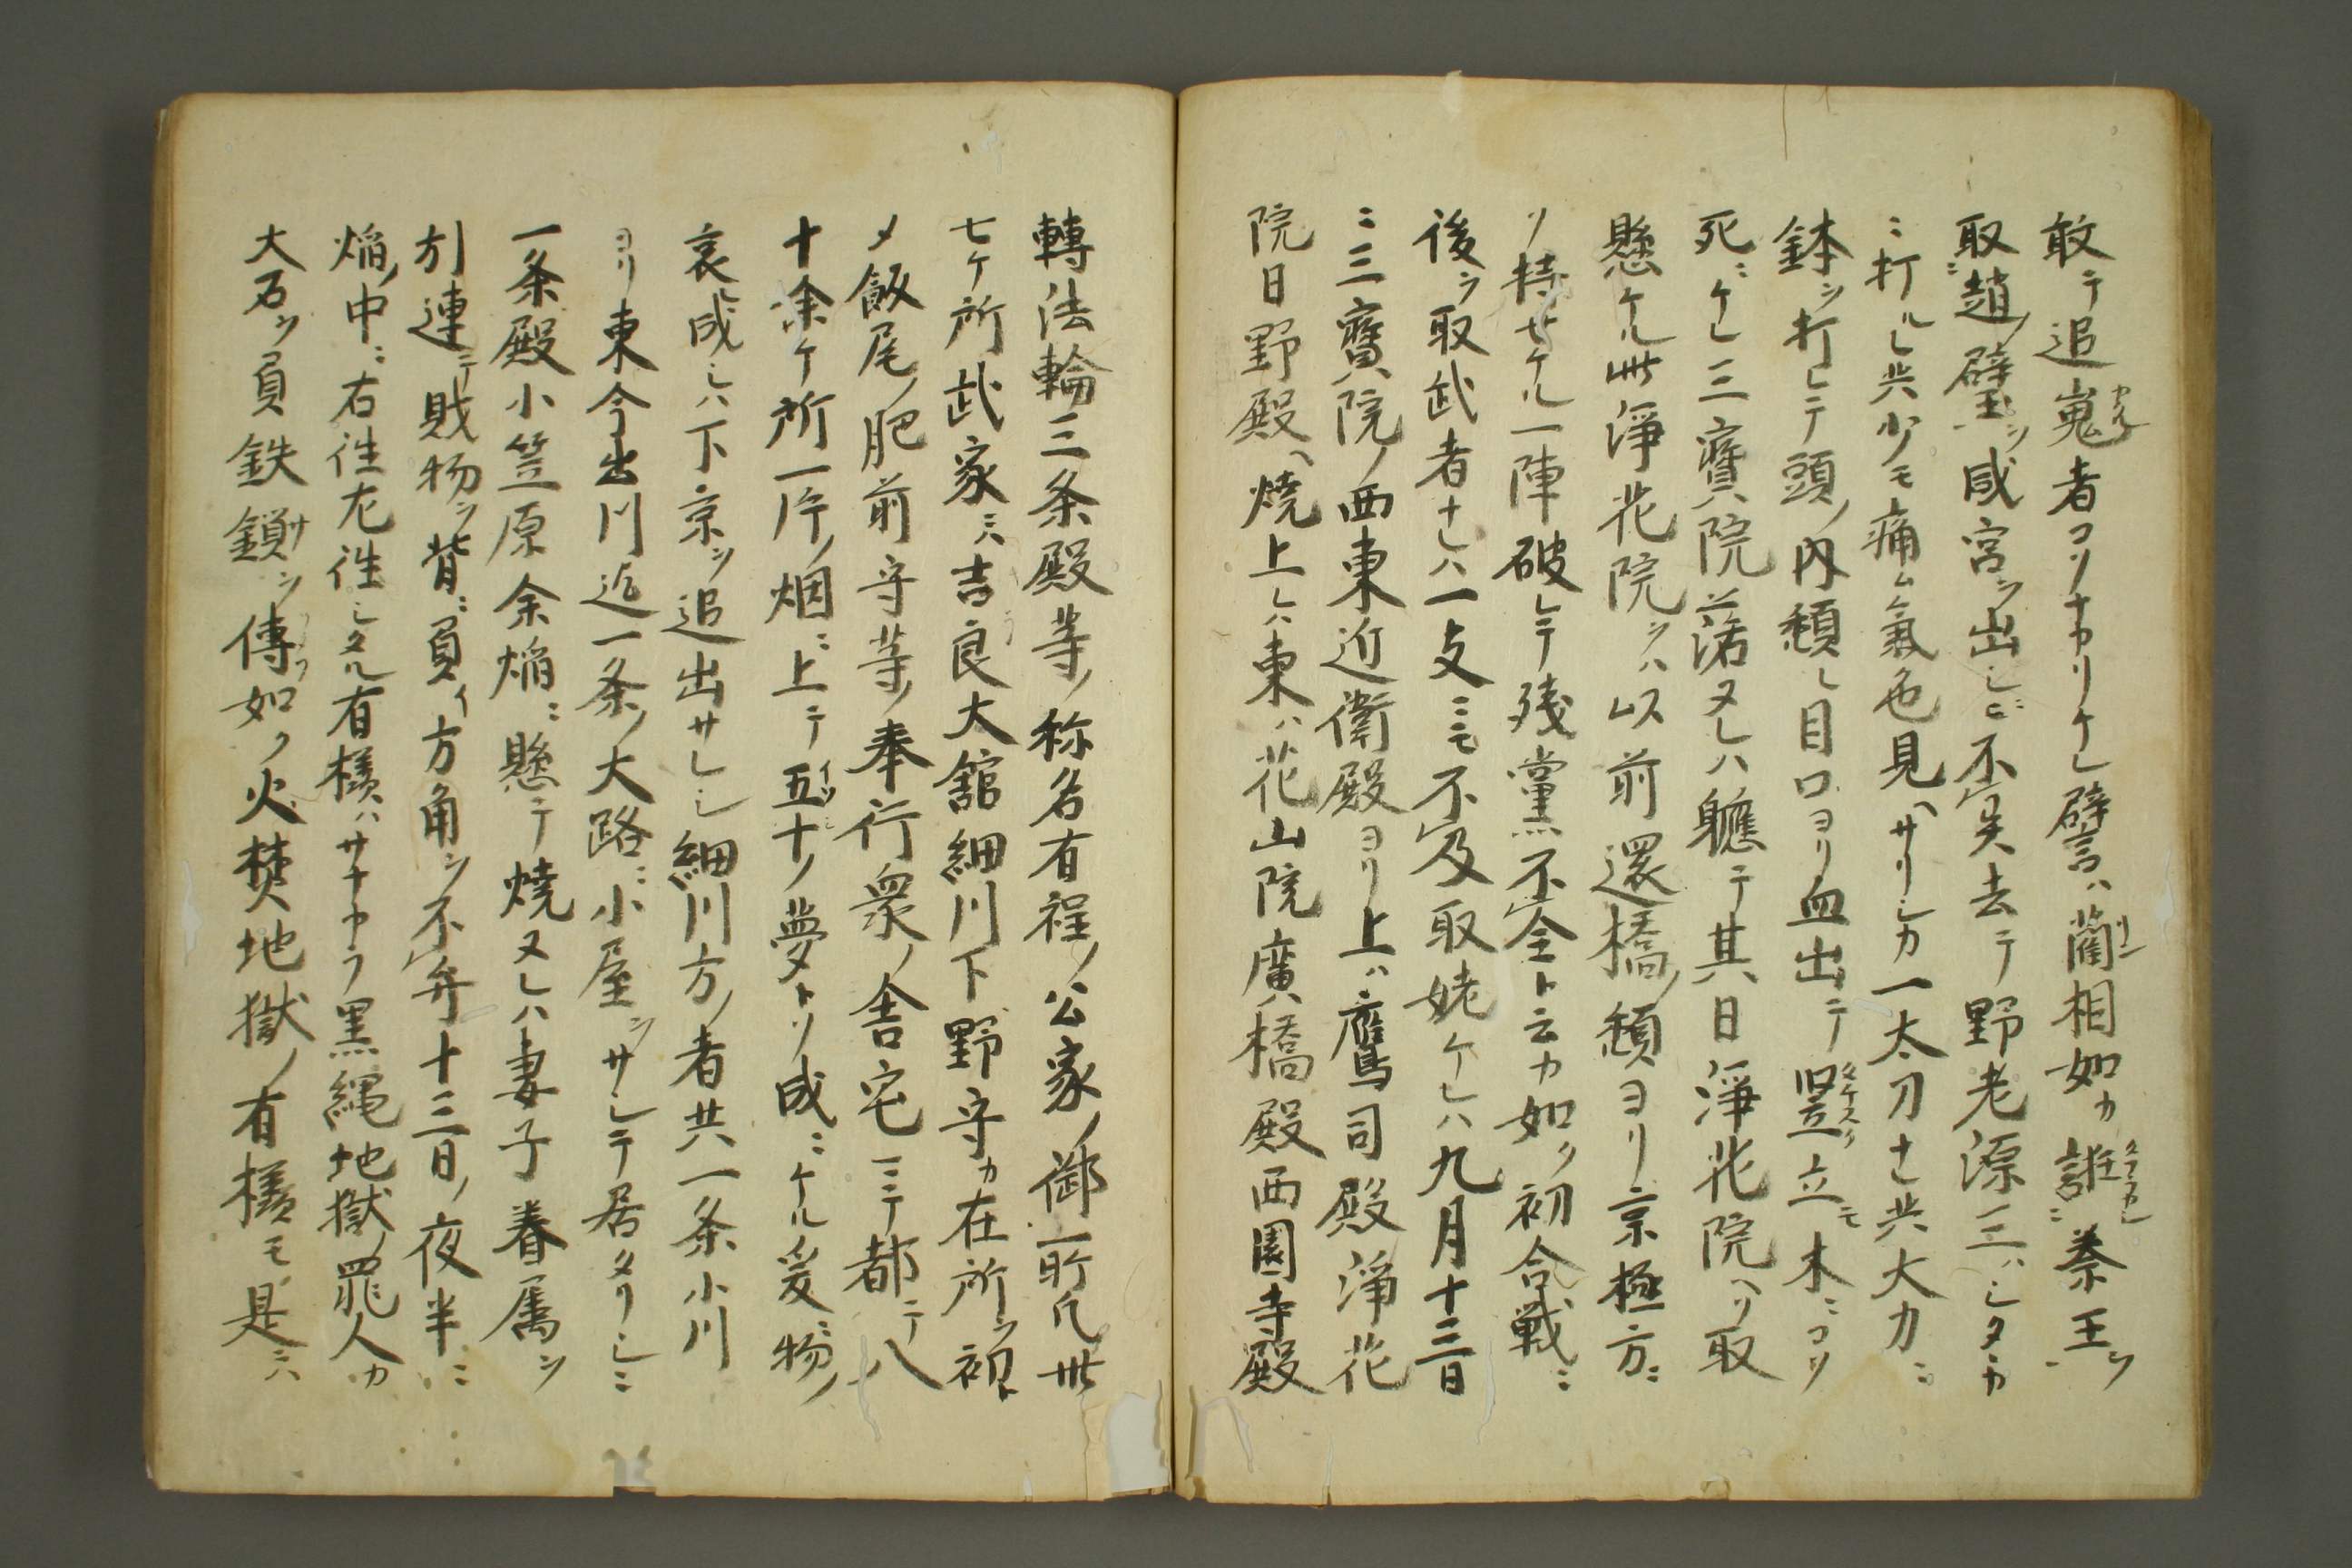 敢テ追嵬者コソナカリケレ譬ハ藺相如カ誑ニ秦王ヲ
取趙ノ璧ヲ咸宮ヲ出シニ不異去テ野老源三ハシタヽカ
ニ打ルレ共少モ痛ム氣色見ヘサリシカ一太刀ナレ共大力ニ
鉢ヲ打レテ頭ノ内頽レ目口ヨリ血出テ竪立モ木ニコソ
死ニケレ三寳院落ヌレハ軈テ其日淨花院ヘソ取
懸ケル此淨花院ヲハ以前還橋ノ頽ヨリ京極方ニ
ソ持セケル一陣破レテ残黨不全ト云カ如ク初合戦ニ
後ヲ取武者ナレハ一支ニモ不及取姥ケレハ九月十三日
ニ三寳院ノ西東近衛殿ヨリ上ハ鷹司殿淨花
院日野殿ヘ燒上レハ東ハ花山院廣橋殿西園寺殿
轉法輪三条殿等ノ称名有程ノ公家ノ御所凡卅
七ケ所武家ニハ吉良大舘細川下野守カ在所ヲ初ト
メ飯尾ノ肥前守等ノ奉行衆ノ舎宅ニテ都テ八
十余ケ所一片ノ烟ニ上テ五十ノ夢トソ成ニケル爰ニ物ノ
哀成シハ下京ヲ追出サレシ細川方ノ者共一条小川
ヨリ東今出川迄一条ノ大路ニ小屋ヲサシテ居タリシニ
一条殿小笠原余焔ニ懸テ燒ヌレハ妻子眷属ヲ
引連テ財物ヲ背ニ負イ方角ヲ不弁十三日ノ夜半ニ
焔ノ中ニ右往左往シタル有様ハサナカラ黒縄地獄ノ罪人カ
大石ヲ負鉄鎖ヲ傳フ如ク火焚地獄ノ有様モ是ニハ